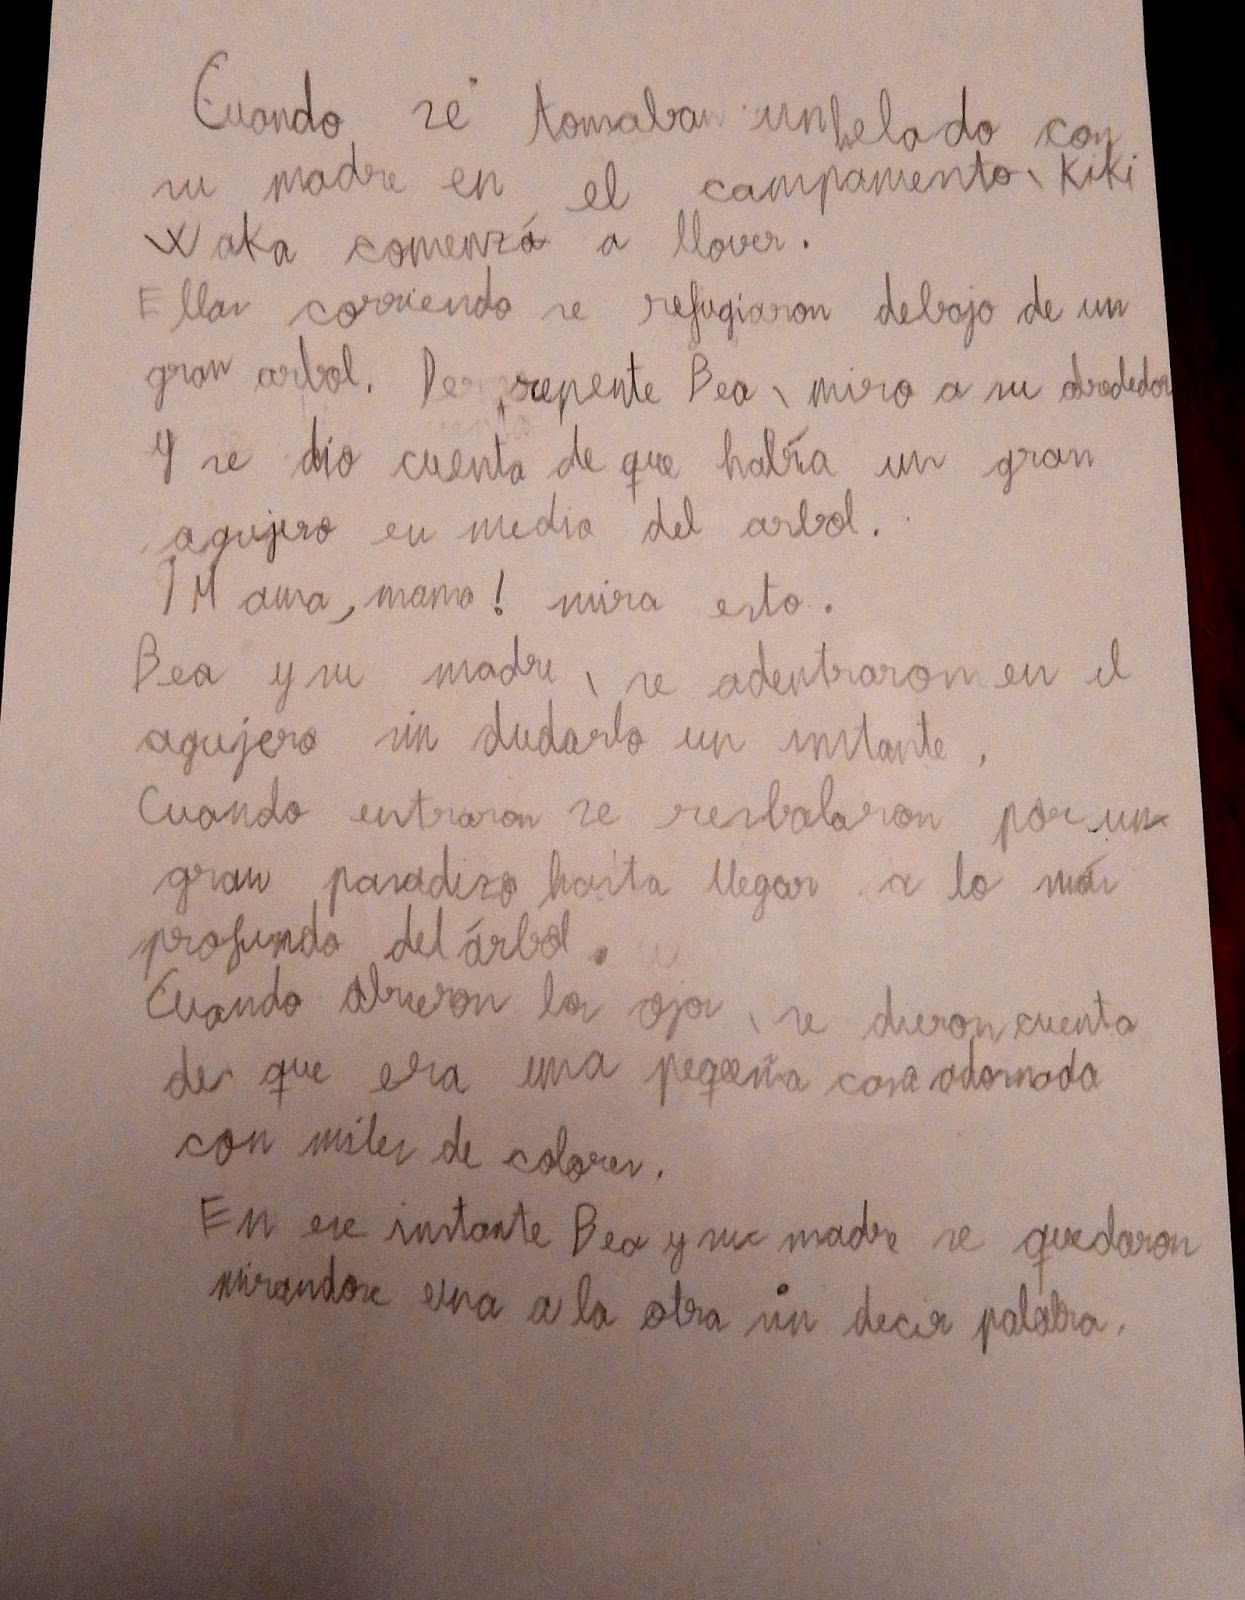 Cuando se tomaban un helado con
su madre en el campamento, Kiki
Waka comenzó a llover.
Ellas corriendo se refugiaron debajo de un
gran arbol. De repente Bea, miro a su alrededor
y se dio cuenta de que había un gran
agujero en medio del arbol.
¡Mama, mama! mira esto.
Bea y su madre, se adentraron en el
agujero sin dudarlo un instante.
Cuando entraron se resbalaron por un
gran paradizo hasta llegar a lo más
profundo del árbol.
Cuando abrieron los ojos, se dieron cuenta
de que era una pequeña casa adornada
con miles de colores.
En ese instante Bea y su madre se quedaron
mirandose una a la otra sin decir palabra.